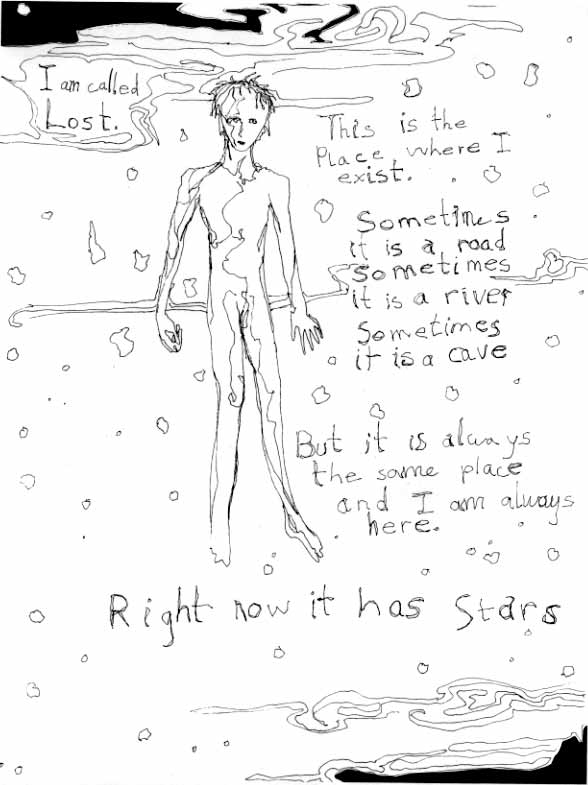 I am called
Lost.
This is the
Place where I
exist.
Sometimes
it is a road
sometimes
it is a river
Sometimes
it is a cave
But it is always
the same place
and I am always
here.
Right now it has Stars